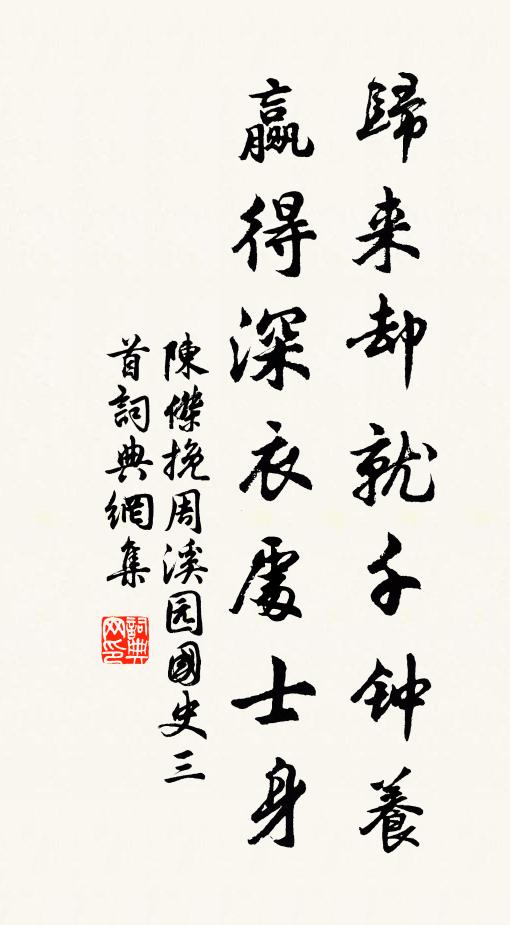 歸来却就千钟養
赢得深衣處士身
陳傑挽周溪园國史三
首詞典網集
詞典网印